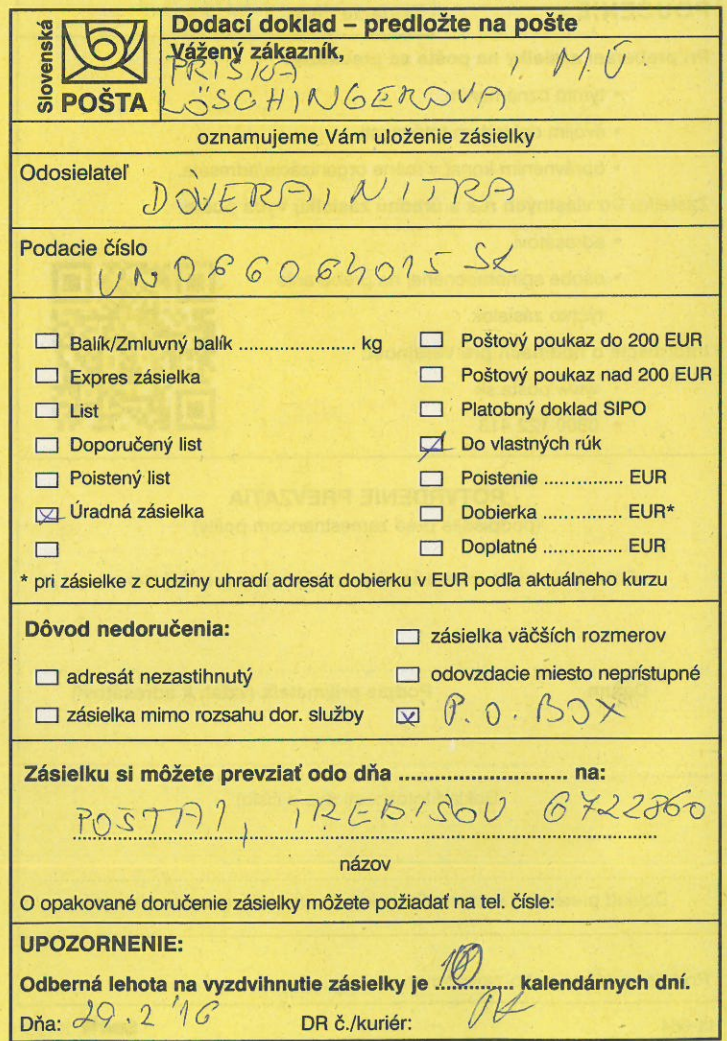 Slovenská
POŠTA
Dodací doklad – predložte na pošte
Vážený zákazník,
PRISKA
LÖSCHINGEROVÁ, M.Ú.
oznamujeme Vám uloženie zásielky
Odosielateľ
DOVERA, NITRA
Podacie číslo
UN066064015 SK
Balík/Zmluvný balík ....................... kg
Expres zásielka
List
Doporučený list
Poistený list
Úradná zásielka
Poštový poukaz do 200 EUR
Poštový poukaz nad 200 EUR
Platobný doklad SIPO
Do vlastných rúk
Poistenie ............... EUR
Dobierka ............... EUR*
Doplatné ............... EUR
* pri zásielke z cudziny uhradí adresát dobierku v EUR podľa aktuálneho kurzu
Dôvod nedoručenia:
zásielka väčších rozmerov
adresát nezastihnutý
odovzdacie miesto neprístupné
zásielka mimo rozsahu dor. služby
P.O. BOX
Zásielku si môžete prevziať odo dňa ............................ na:
POŠTA 1, TREBIŠOV 6722860
názov
O opakované doručenie zásielky môžete požiadať na tel. čísle:
UPOZORNENIE:
Odberná lehota na vyzdvihnutie zásielky je ............. kalendárnych dní.
Dňa: 29.2'16 DR č./kuriér: